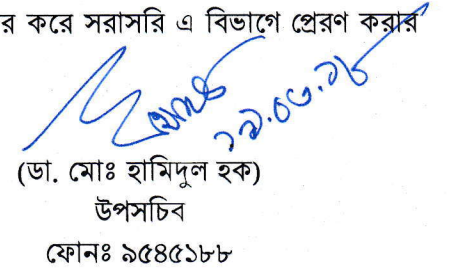 র করে সরাসরি এ বিভাগে প্রেরণ করার
১৯.০৩.১৮
(ডা. মোঃ হামিদুল হক)
উপসচিব
ফোনঃ ৯৫৪৫১৮৮